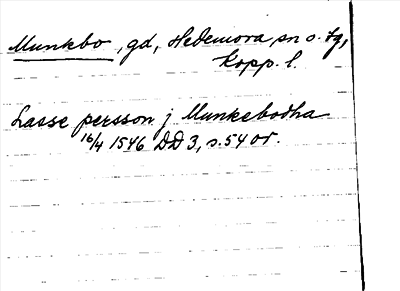 Munkbo, gd, Hedemora sn o. tg,
Kopp. l.
Lasse persson j Munkebodha
16/4 1546 DD 3, s. 54 or.